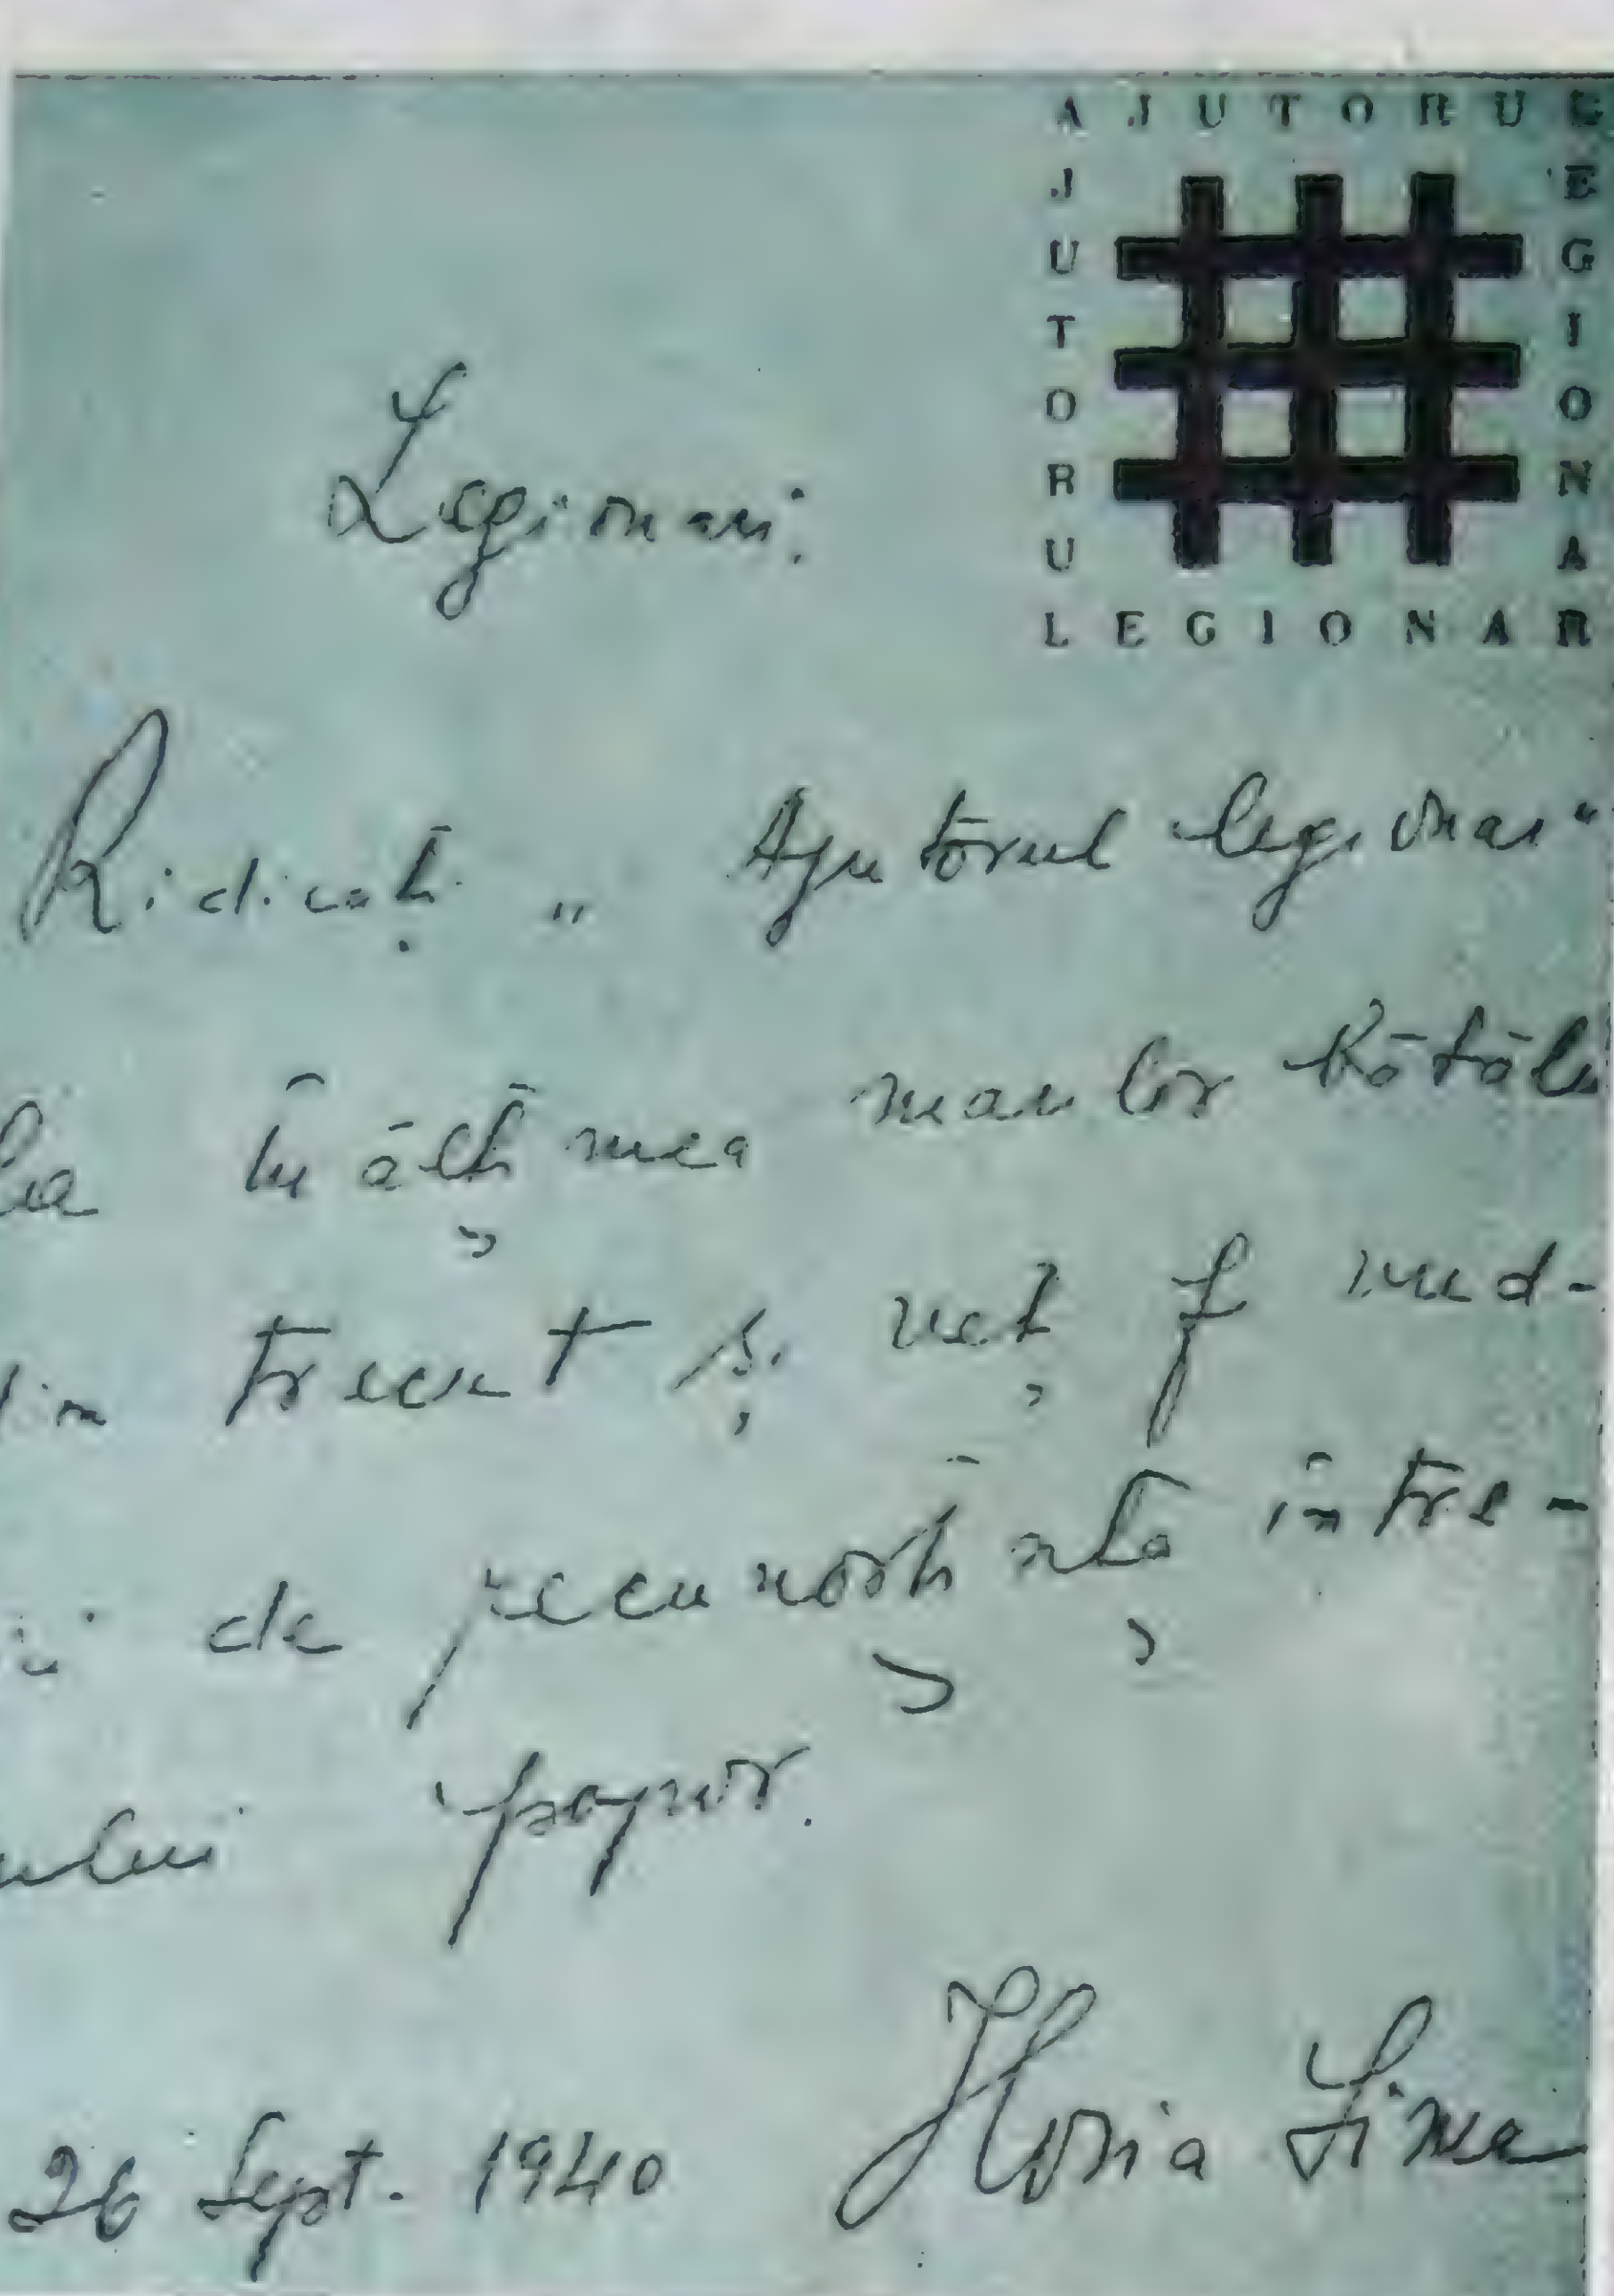 AJUTORUL
LEGIONAR
AJUTORUL
LEGIONAR
Legionari:
Ridicați „Ajutorul legionar"
la înălțimea marilor bătăli
din trecut și veți fi mând-
ri de recunoștința între-
ului popor.
26 Sept. 1940 Horia Sima